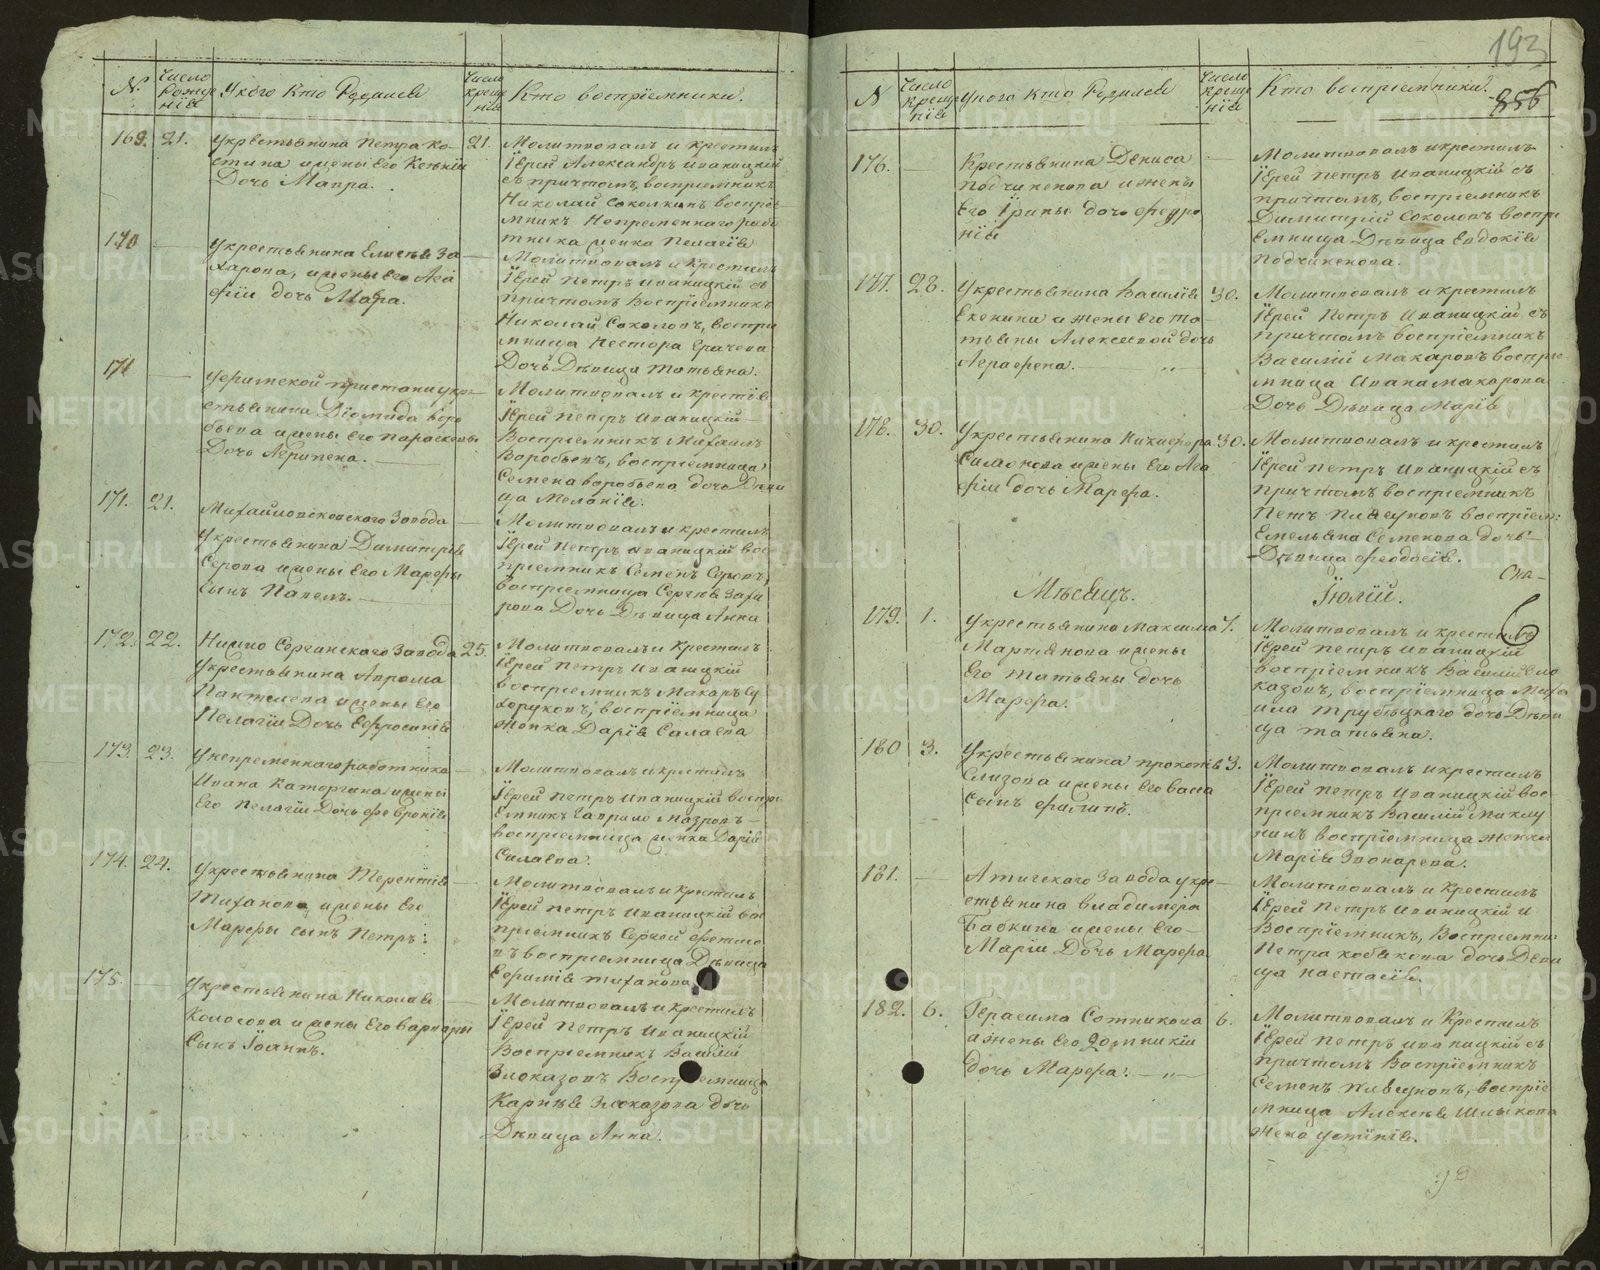 193
856
№
Число рождения
У кого кто родился
Число крещения
Кто воспріемники.
169. 21.
У крестьянина Петра Ко-
стина и жены его Ксеніи
Дочь Мавра.
21.
Молитвовалъ и крестилъ
Іерей Александръ Иваницкій
съ причтомъ, воспріемникъ
Николай Соколкинъ воспріе-
мникъ Непременнаго рабо
тника женка Пелагія
170
У крестьянина Елисея За
харова, и жены его Ага
фіи дочь Мавра.
Молитвовалъ и крестилъ
Іерей Петръ Иваницкій съ
причтомъ Воспріемникъ
Николай Соколовъ, воспрі
мница Нестора
Дочь Девица Татьяна.
171
Уфимской пристани у кре-
стьянина Діомида Воро
бьева и жены его Парасковьи
Дочь Агрипена.
Молитвовалъ и крести
Іерей Петръ Иваницкій
Воспріемникъ Михаилъ
Воробьевъ, воспріемница
Семена Воробьева дочь Деви
ца Меланія.
171. 21.
Михайловскаго Завода
У крестьянина Димитрія
Серова и жены его Марфы
Сынъ Павелъ.
Молитвовалъ и крестилъ
Іерей Петръ Иваницкій вос
пріемникъ Семенъ Серовъ,
воспріемница Сергея Заха
рова Дочь Девица Анна
172. 22.
Нижно Сергинскаго Завода
У крестьянина Аврама
Пантилева и жены его
Пелагіи Дочь Ефросинія
25.
Молитвовалъ и Крестилъ
Іерей Петръ Иваницкій
воспріемникъ Макаръ Су
хоруковъ, воспріемница
жонка Дарія Салаева
173. 23.
У непременнаго работника
Ивана Каторгина и жены
Его Пелагіи Дочь Февронія
Молитвовалъ и крестилъ
Іерей Петръ Иваницкій воспрі
Емникъ Гаврило Мазровъ
воспріемница женка Дарія
Силаева.
174. 24.
У крестьянина Терентія
Тиханова и жены Его
Марфы сынъ Петръ.
Молитвовалъ и крестилъ
Іерей Петръ Иваницкій вос
пріемникъ Сергей
въ воспріемница Девица
Ефимія Тиханова
175.
У крестьянина Николая
Колосова и жены Его Варвары
Сынъ Іоаннъ.
Молитвовалъ и крестилъ
Іерей Петръ Иваницкій
Воспріемникъ Василій
Злоказовъ Воспріемница
Карнея Злоказова дочь
Девица Анна.
N
Число крещенія
У кого кто родился
Число крещенія
Кто воспріемники.
176.
Крестьянина Дениса
Подчиненова и жены
Его Ірины дочь Февро
нія
Молитвовалъ и крестилъ
Іерей Петръ Иваницкій съ
причтомъ, воспріемникъ
Димитрій Соколовъ воспрі
Емница Девица Евдокія
Подчиненова.
177. 28.
У крестьянина Василія
Екенина и жены Его Та-
тьяны Алексеевой дочь
Аграфена.
30.
Молитвовалъ и крестилъ
Іерей Петръ Иваницкій съ
причтомъ воспріемникъ
Василій Макаровъ воспріе
мница Ивана Макарова
Дочь Девица Марія
178. 30.
У крестьянина Никифора
Симонова и жены Его Ага
фіи дочь Марфа.
30.
Молитвовалъ и крестилъ
Іерей Петръ Иваницкій съ
причтомъ воспріемникъ
Петъ Плясуновъ воспріем:
Емельяна Семенова дочь
Девица Феодосія.
Мѣсяцъ.
Іюлій.
179. 1.
У крестьянина Максима
Мартьянова и жены
Его Татьяны дочь
Марфа.
Молитвовалъ и крестилъ
Іерей Петръ Иваницкій
воспріемникъ Василій Зло
казовъ, воспріемница Миха
ила Трубецкаго дочь Деви
ца Татьяна.
180 3.
У крестьянина Прокопья
Слизова и жены Его Васа
Сынъ Филипъ.
3.
Молитвовалъ и крестилъ
Іерей Петръ Иваницкій вос-
пріемникъ Василій Микулу
нинъ воспріемница женка
Марія Звонарева.
181.
Атигскаго Завода у кре-
стьянина Владимера
Бабкина и жены Его
Маріи Дочь Марфа
Молитвовалъ и Крестилъ
Іерей Петръ Иваницкій и
Воспріемникъ, Воспріемни:
Петра Кобякова дочь Деви
ца Настасія.
182. 6.
Герасима Сотникова
и жены Его Домникіи
дочь Марфа.
6.
Молитвовалъ и Крестилъ
Іерей Петръ Иваницкій съ
причтомъ Воспріемникъ
Семенъ Плясуновъ, воспріе
мница Алексея Шлыкова
жена Устинія.
METRIKI.GASO-URAL.RU